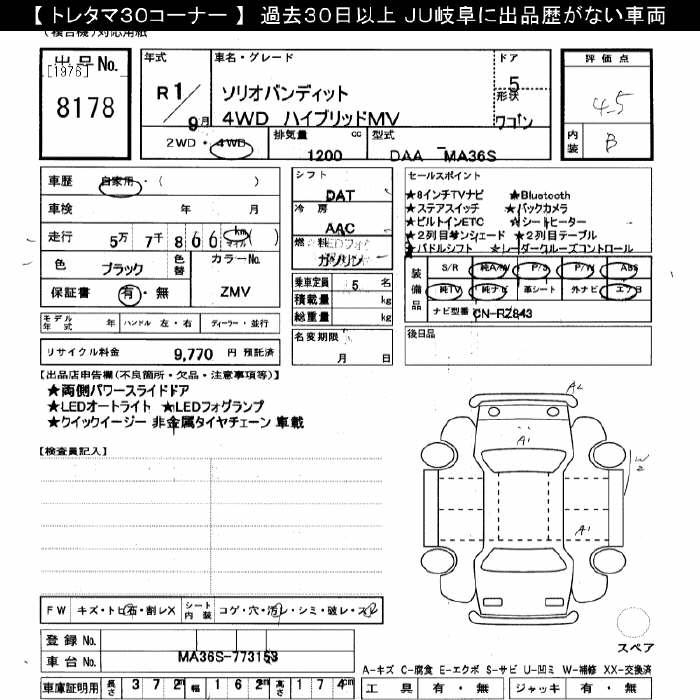 【 トレタマ30コーナー 】 過去30日以上 JU岐阜に出品歴がない車両
出品No.
[1976]
8178
年式
R1/9月
車名・グレード
ソリオバンディット
4WD ハイブリッドMV
ドア
5
形状
ワゴン
評価点
4.5
内装
B
2WD・4WD
排気量
1200 cc
型式
DAA MA36S
車歴 自家用・( )
車検 年 月
走行 5万 7千 8 6 6 km マイル ( )
色 ブラック
色替
カラーNo.
ZMV
保証書 有・無
シフト
DAT
冷房
AAC
燃料
ガソリン
乗車定員 5 名
積載量 kg
総重量 kg
セールスポイント
★8インチTVナビ ★Bluetooth
★ステアスイッチ ★バックカメラ
★ビルトインETC ★シートヒーター
★2列目サンシェード ★2列目テーブル
★パドルシフト ★レーダークルーズコントロール
装備品
S/R 純A/W P/S P/W ABS
純TV 純ナビ 革シート 外ナビ エアB
ナビ型番 CN-RZ843
モデル年式 年 ハンドル 左・右 ディーラー・並行
名変期限 月 日
後日品
リサイクル料金 9,770 円 預託済
【出品店申告欄(不良箇所・欠品・注意事項等)】
★両側パワースライドドア
★LEDオートライト ★LEDフォグランプ
★クイックイージー 非金属タイヤチェーン 車載
【検査員記入】
A2
A1
W2
A1
FW キズ・トビ石・割レX
シート内装 コゲ・穴・汚レ・シミ・破レ・スレ
登録No.
車台No. MA36S-773153
スペア
A-キズ C-腐食 E-エクボ S-サビ U-凹ミ W-補修 XX-交換済
車庫証明用 長さ 3 7 2 cm 幅 1 6 2 cm 高さ 1 7 4 cm
工具 有・無 ジャッキ 有・無